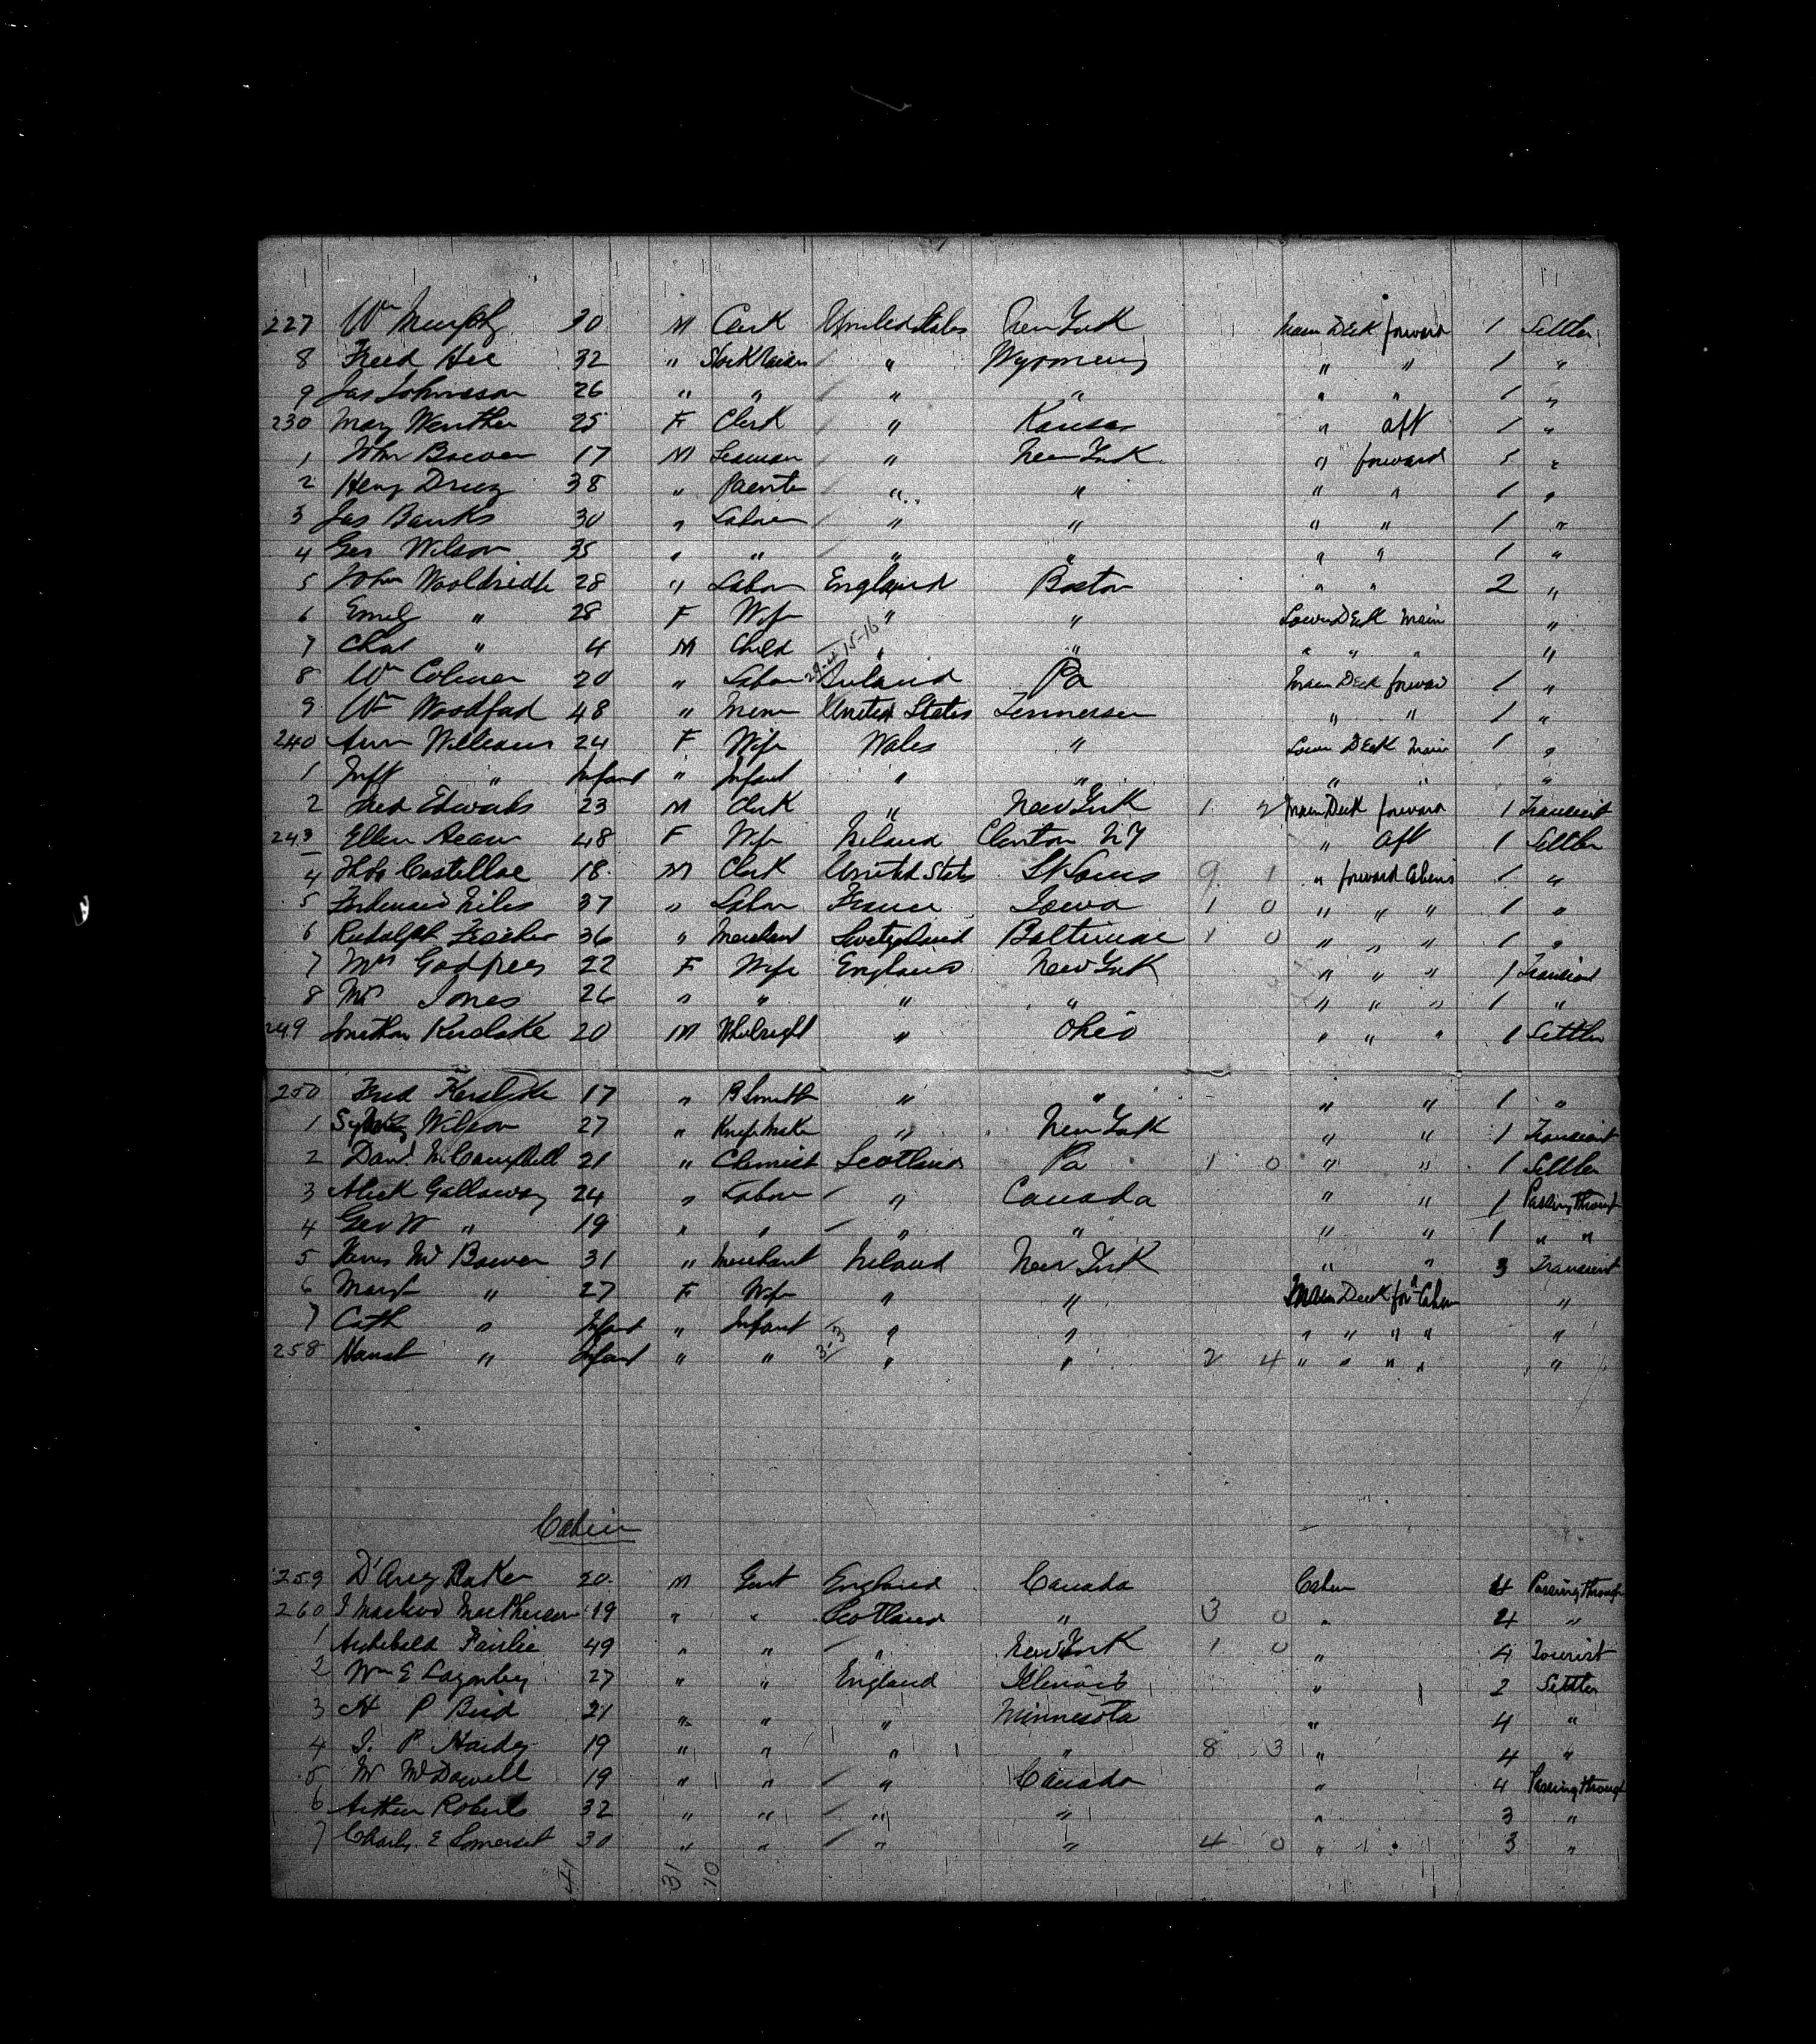 227 Wm Murphy 30 M Clerk United States New York Main Deck forward 1 Settler
8 Fred Hee 32 " Stock Raiser " Wyoming " " 1 "
9 Jas Johnson 26 " " " " " " 1 "
230 Mary Wenther 25 F Clerk " Kansas " aft 1 "
1 John Bowen 17 M Seaman " New York " forward 5 "
2 Heny 38 " Painter " " " " 1 "
3 Jas Banks 30 " Laborer " " " " 1 "
4 Geo Wilson 35 " " " " " " 1 "
5 John Wooldridth 28 " Labor England Boston " " 2 "
6 Emily " 28 F Wife " " Lower Deck Main "
7 Chas " 4 M Child " " " " " "
8 Wm 20 " Labor Ireland Pa Main Deck forward 1 "
9 Wm Woodfad 48 " Miner United States Tennessee " " 1 "
240 Ann Williams 24 F Wife Wales " Lower Deck Main 1 "
1 Inft " Infant " Infant " " " " "
2 Fred Edwards 23 M Clerk " New York 1 2 Main Deck forward 1 Transient
243 Ellen 48 F Wife Ireland Clinton NY " aft 1 Settler
4 Thos Castelloe 18 M Clerk United States St Louis 9 1 " forward Cabins 1 "
5 Niles 37 " Labor France Iowa 1 0 " " " 1 "
6 Rudolph Fischer 36 " Merchant Switzerland Baltimore 1 0 " " " 1 "
7 Mrs Godfrey 22 F Wife England New York " " " 1 Transient
8 Mrs Jones 26 " " " " " " " 1 "
249 Jonathan Kerslake 20 M Whelright " Ohio " " " 1 Settler
250 Fred Kerslake 17 " B Smith " " " " 1 "
1 Sydney Wilson 27 " Knife Maker " New York " " 1 Transient
2 Davd McCampbell 21 " Chemist Scotland Pa 1 0 " " 1 Settler
3 Alick Galloway 24 " Labor " Canada " " 1 Passing through
4 Geo W " 19 " " " " " " 1 " "
5 James McBowen 31 " Merchant Ireland New York " " 3 Transient
6 Margt " 27 F Wife " " Main Deck for'd Cabin "
7 Cath " Infant " Infant " " " " " " "
258 Hanah " Infant " " " " 2 4 " " " " "
Cabin
259 D'Arcy Baker 20 M Gent England Canada Cabin 4 Passing through
260 J Macleod MacPherson 19 " " Scotland " 3 0 " 4 "
1 Archibald Fairlie 49 " " " New York 1 0 " 4 Tourist
2 Wm E Lazenby 27 " " England Illinois " 2 Settler
3 H P Bird 21 " " " Minnesota " 4 "
4 J. P. Hardy 19 " " " " 8 3 " 4 "
5 W McDowell 19 " " " Canada " 4 Passing through
6 Arthur Roberts 32 " " " " " 3 "
7 Charly E Somerset 30 " " " " 4 0 " 3 "
41 31 10